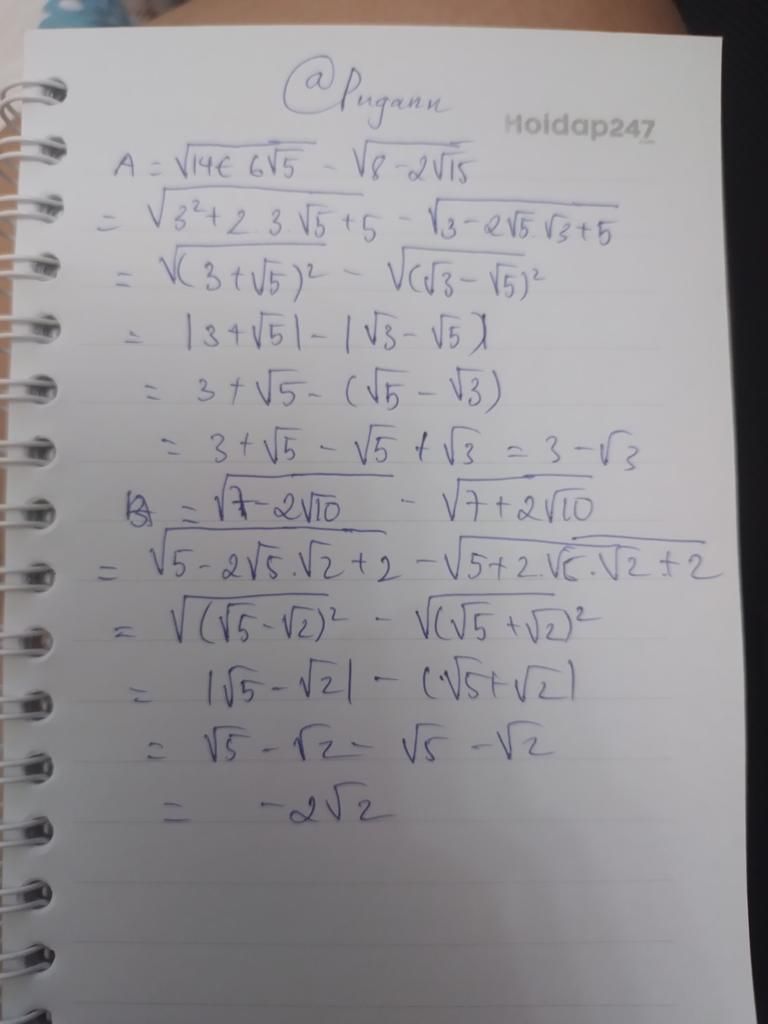 @Pugann
Hoidap247
A = √14+ 6√5 - √8-2√15
= √3²+2.3.√5+5 - √3-2√5.√3+5
= √(3+√5)² - √(√3-√5)²
= |3+√5| - |√3-√5|
= 3+√5-(√5-√3)
= 3+√5-√5+√3 = 3-√3
B = √7-2√10 - √7+2√10
= √5-2√5.√2+2 - √5+2.√5.√2+2
= √(√5-√2)² - √(√5+√2)²
= |√5-√2| - (√5+√2|
= √5-√2-√5-√2
= -2√2